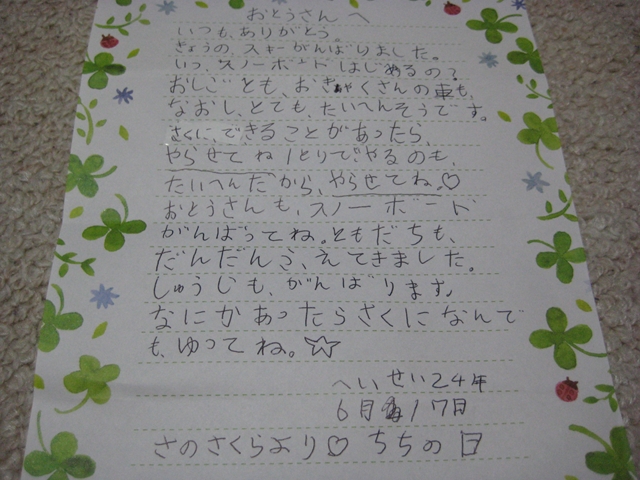 おとうさんへ
いつも、ありがとう。
きょうの、スキーがんばりました。
いつ、スノーボードはじめるの?
おしごとも、おきゃくさんの車も、
なおし、とても、たいへんそうです。
さくに、できることがあったら、
やらせてね1とりでやるのも、
たいへんだから、やらせてね。♡
おとうさんも、スノーボード
がんばってね。ともだちも、
だんだんふえてきました。
しゅうじも、がんばります。
なにかあったらさくになんで
も、ゆってね。☆
へいせい24年
6月17日
さのさくらより♡ちちの日